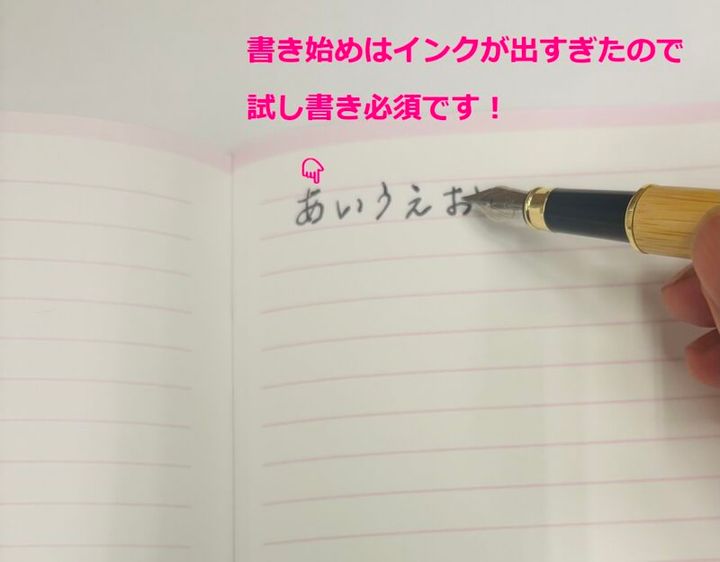 書き始めはインクが出すぎたので
試し書き必須です！
あいうえお